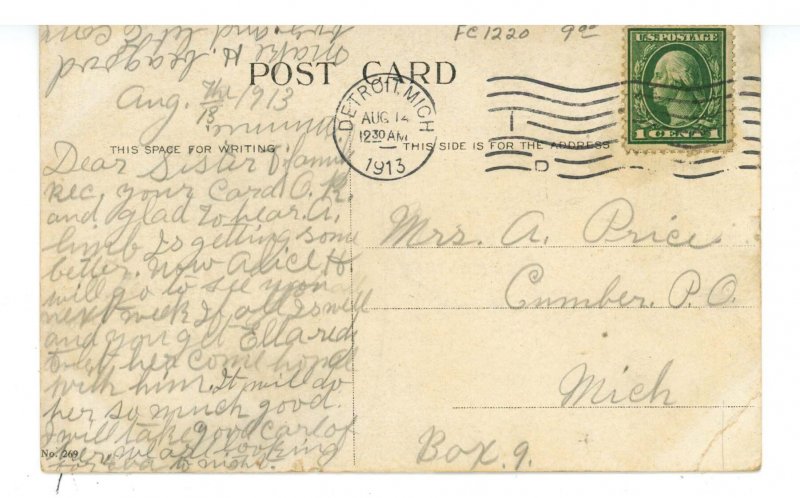 FC 1220 9.00
U.S. POSTAGE
1 CENT 1
POST CARD
DETROIT, MICH
AUG 14
12 30 AM
1913
Aug. The 13 1913
THIS SPACE FOR WRITING
THIS SIDE IS FOR THE ADDRESS
Dear Sister
Rec, your Card O.K.
and glad to hear A,
limb Is getting some
better. now Alice H
will go to see you
next week If all Is well
and you get Ella red
to let her come home
with him. It will do
her so much good.
I will take good care of
her, we are looking
to night.
make H.
and let
Mrs. A. Price.
Cumber. P.O.
Mich
Box. 9.
No. 269